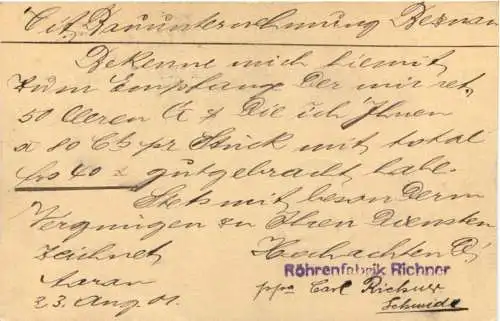 Tit. Bauunternehmung Beznau
Bekenne mich hiemit
zum Empfang der mir ret.
50 leeren die ich Ihnen
a 80 Cts pr Stück mit total
frs 40.- gutgebracht habe.
Stets mit besonderm
Vergnügen zu Ihren Diensten
zeichnet Hochachtend
Röhrenfabrik Richner
Aarau ppa Carl Richner
23. Aug. 01. Schmidt